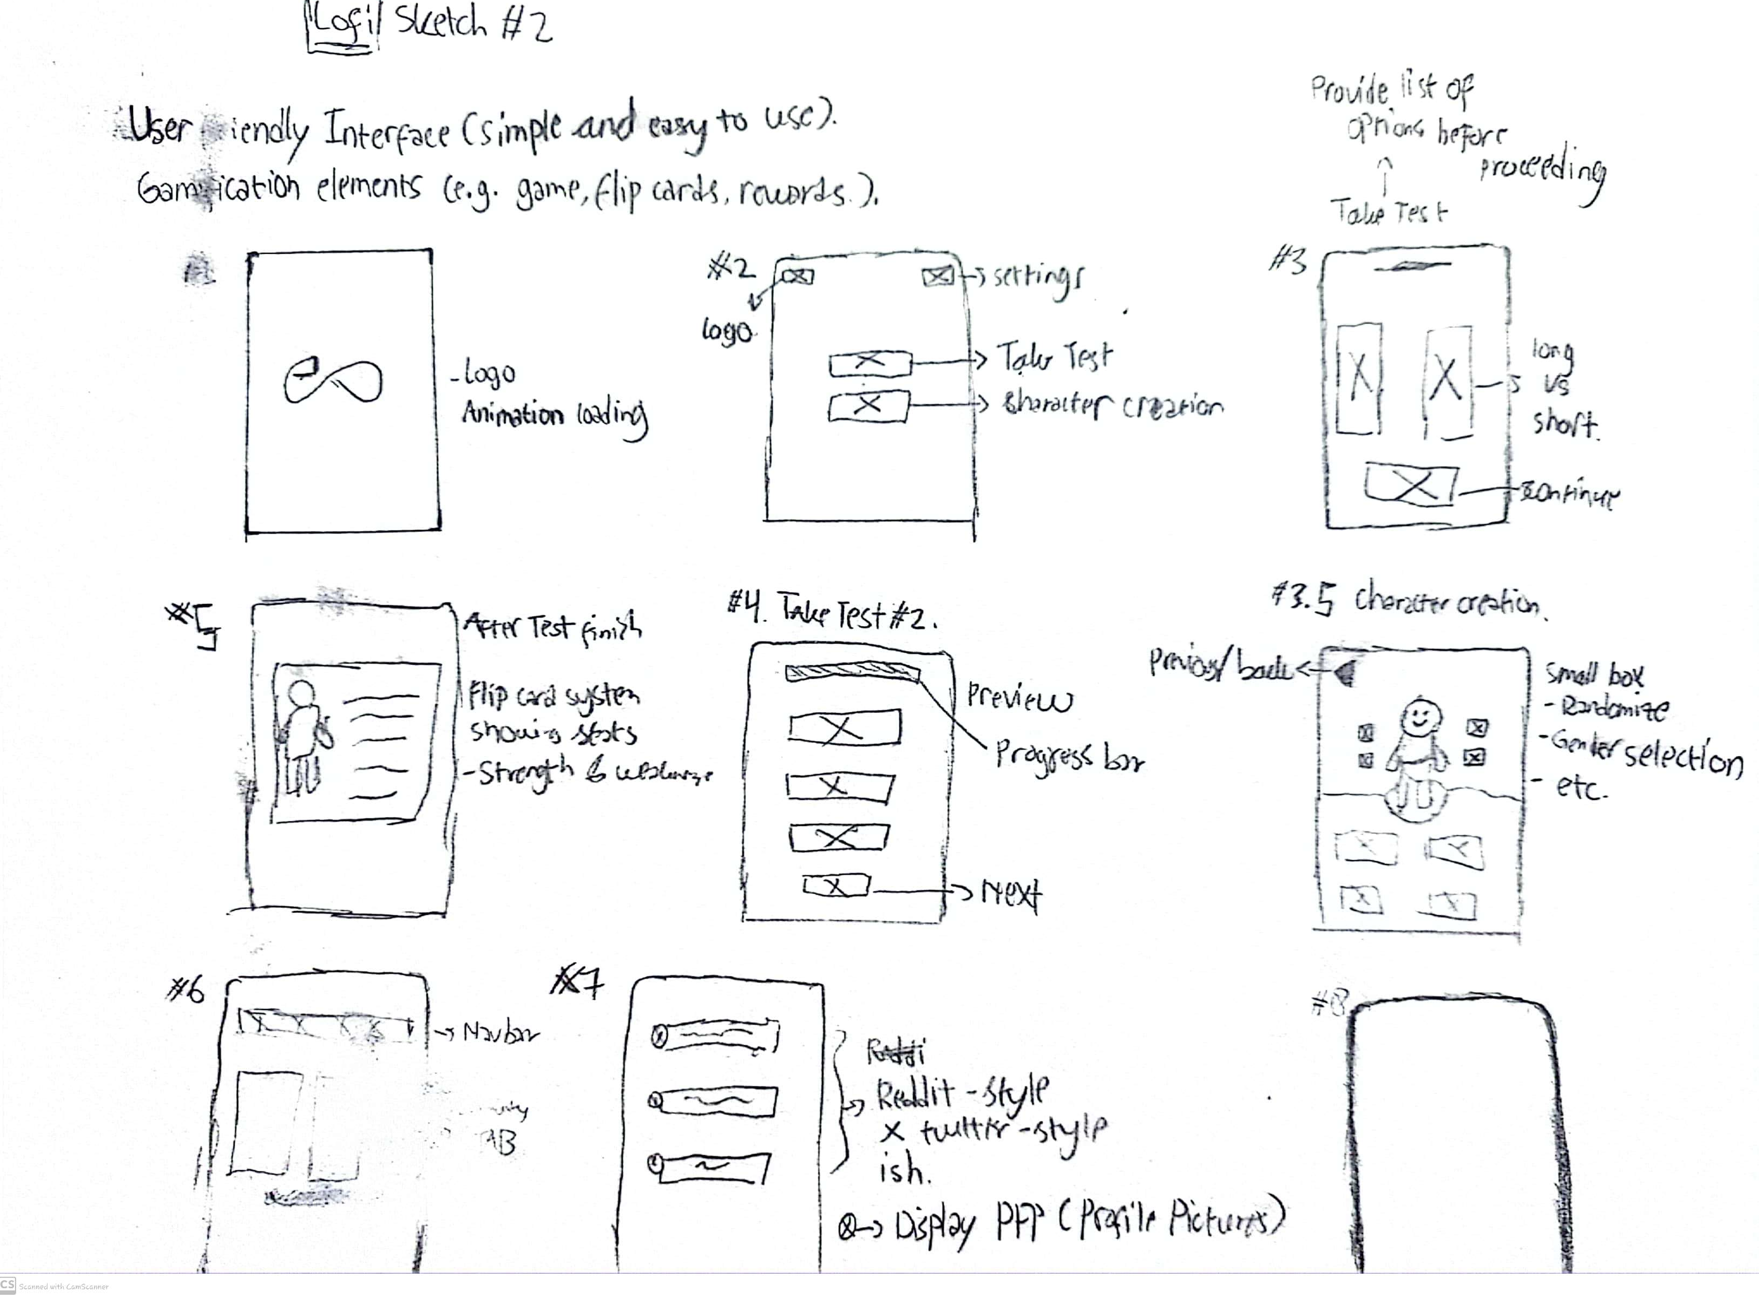 Lofi Sketch #2
User iendly Interface (simple and easy to use).
Gamification elements (e.g. game, flip cards, rewards.).
Provide list of
options before
proceeding
Take Test
#1
- Logo
Animation loading
#2
settings
Logo
Take Test
Character creation
#3
long
vs
short.
continue
#5
After Test finish
Flip card system
showing stats
- Strength &
#4. Take Test #2.
Preview
Progress bar
Next
#3.5 Character creation.
Previous/back
small box
- Randomize
- Gender selection
- etc.
#6
Navbar
#7
Reddi
Reddit-style
X twitter-style
ish.
Display PFP (Profile Pictures)
#8
CS Scanned with CamScanner